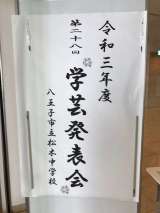 令和三年度
第二十八回
学芸発表会
八王子市立松木中学校